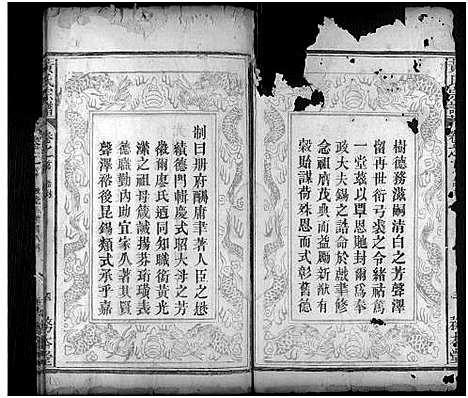 樹德務滋嗣清白之芳聲澤
留再世衍弓裘之令緒祜篤
一堂茲以覃恩貤封爾為奉
政大夫錫之誥命於戲聿修
念祖膺茂典而益勵新猷有
穀貽謀荷殊恩而式彰舊德
制曰冊府酬庸聿著人臣之懋
績德門輯慶式昭大母之芳
徽爾廖氏迺同知職銜黃光
瀠之祖母箴誡揚芬珩璜表
德職勤內助宜家久著其賢
聲澤裕後昆錫類式承乎嘉